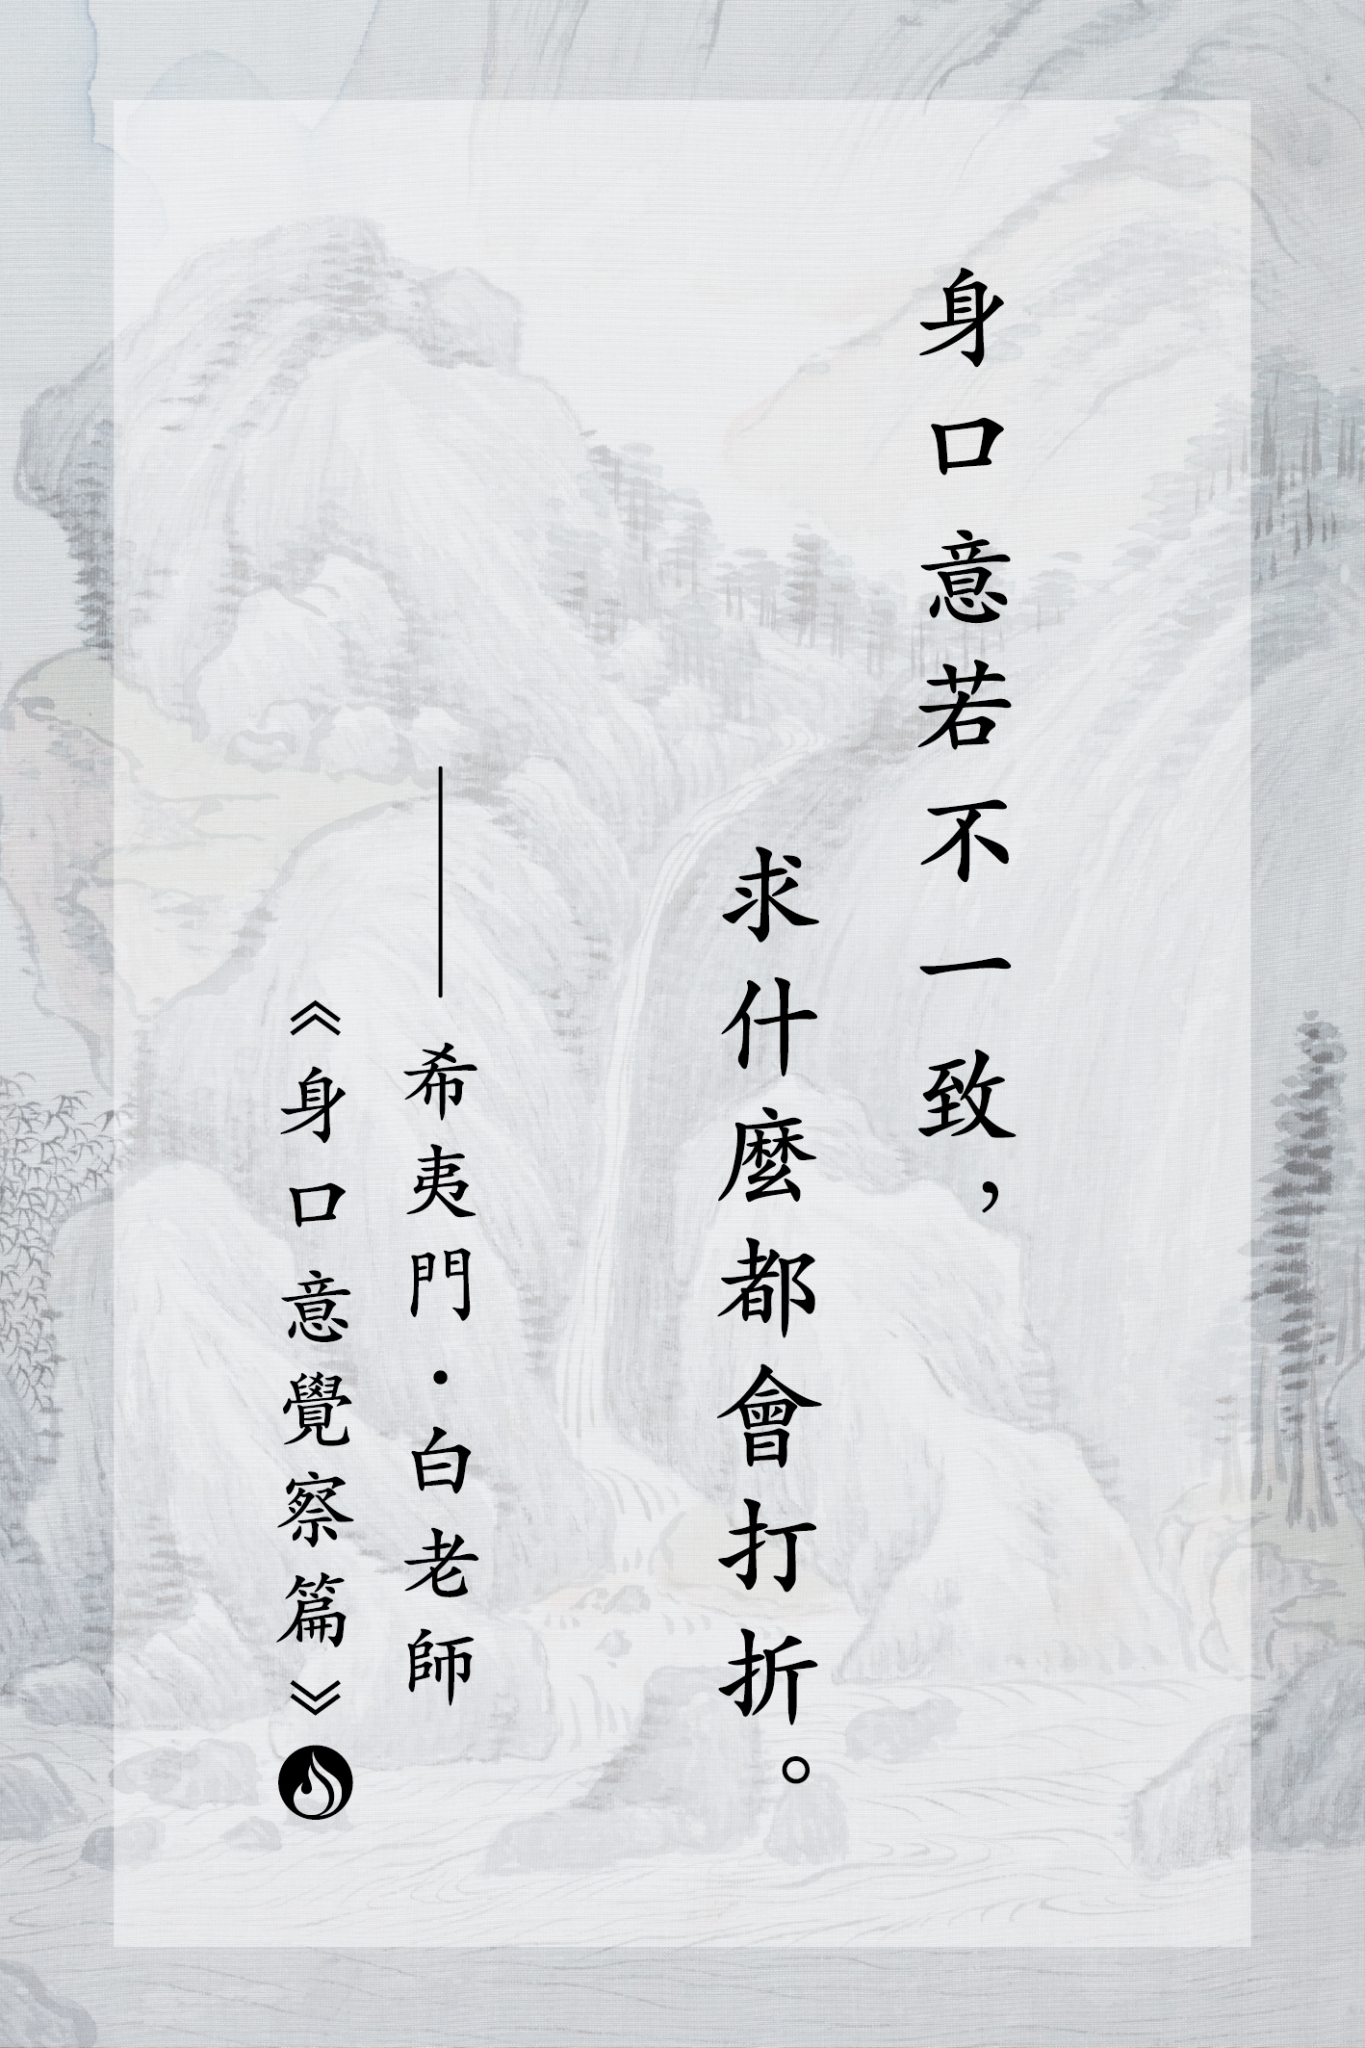 身口意若不一致，
求什麼都會打折。
——希夷門·白老師
《身口意覺察篇》